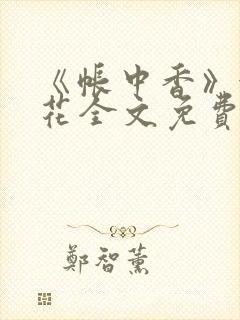 《帐中香》
花全文免費
鄭智薰